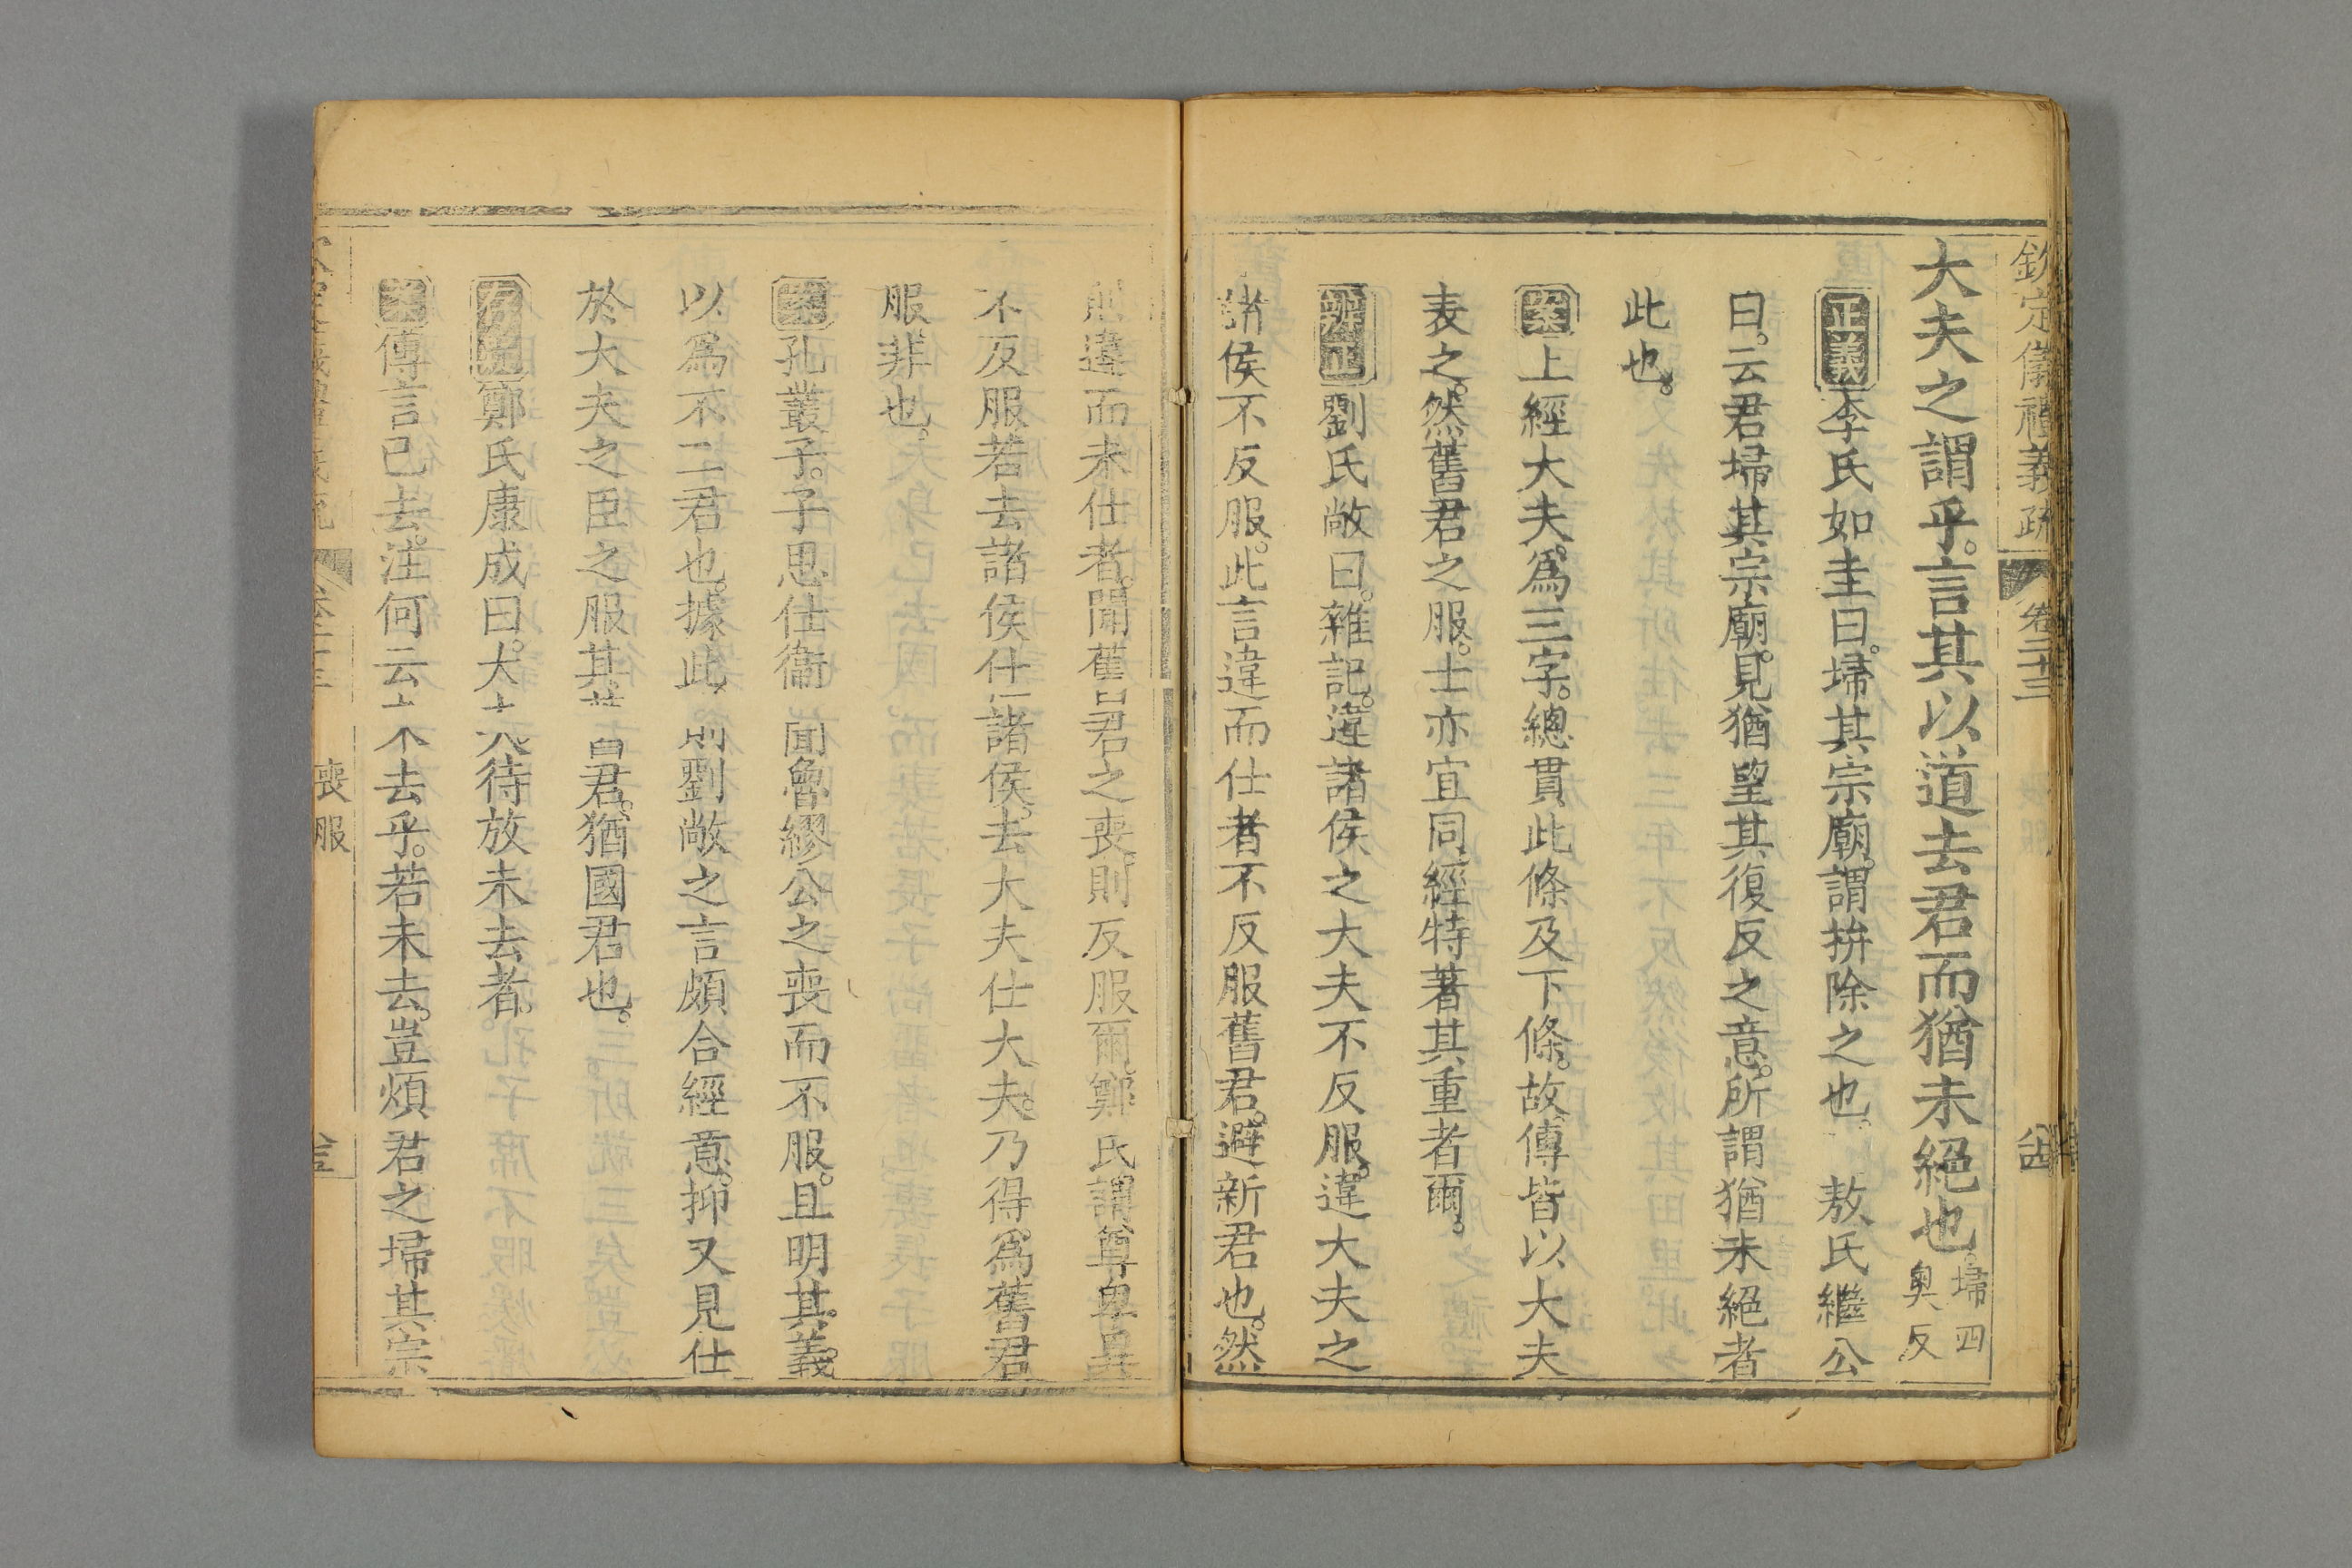 欽定儀禮義疏 卷二十三
大夫之謂乎。言其以道去君而猶未絕也。埽四
奧反
正義李氏如圭曰。埽其宗廟。謂拚除之也。 敖氏繼公
曰。云君埽其宗廟。見猶望其復反之意。所謂猶未絕者
此也。
案上經大夫。為三字。總貫此條及下條。故傳皆以大夫
表之。然舊君之服。士亦宜同。經特著其重者爾。
辨正劉氏敞曰。雜記。違諸侯之大夫不反服。違大夫之
諸侯不反服。此言違而仕者不反服舊君。避新君也。然
則違而未仕者。聞舊君之喪。則反服爾。鄭氏謂尊卑異
不反服。若去諸侯仕諸侯。去大夫仕大夫。乃得為舊君
服。非也。
案孔叢子。子思仕衞 聞魯繆公之喪而不服。且明其義
以為不二君也。據此 則劉敞之言頗合經意。抑又見仕
於大夫之臣之服其 君。猶國君也。
鄭氏康成曰。大夫待放未去者。
案傳言已去。注何云 未去乎。若未去。豈煩君之埽其宗
喪服